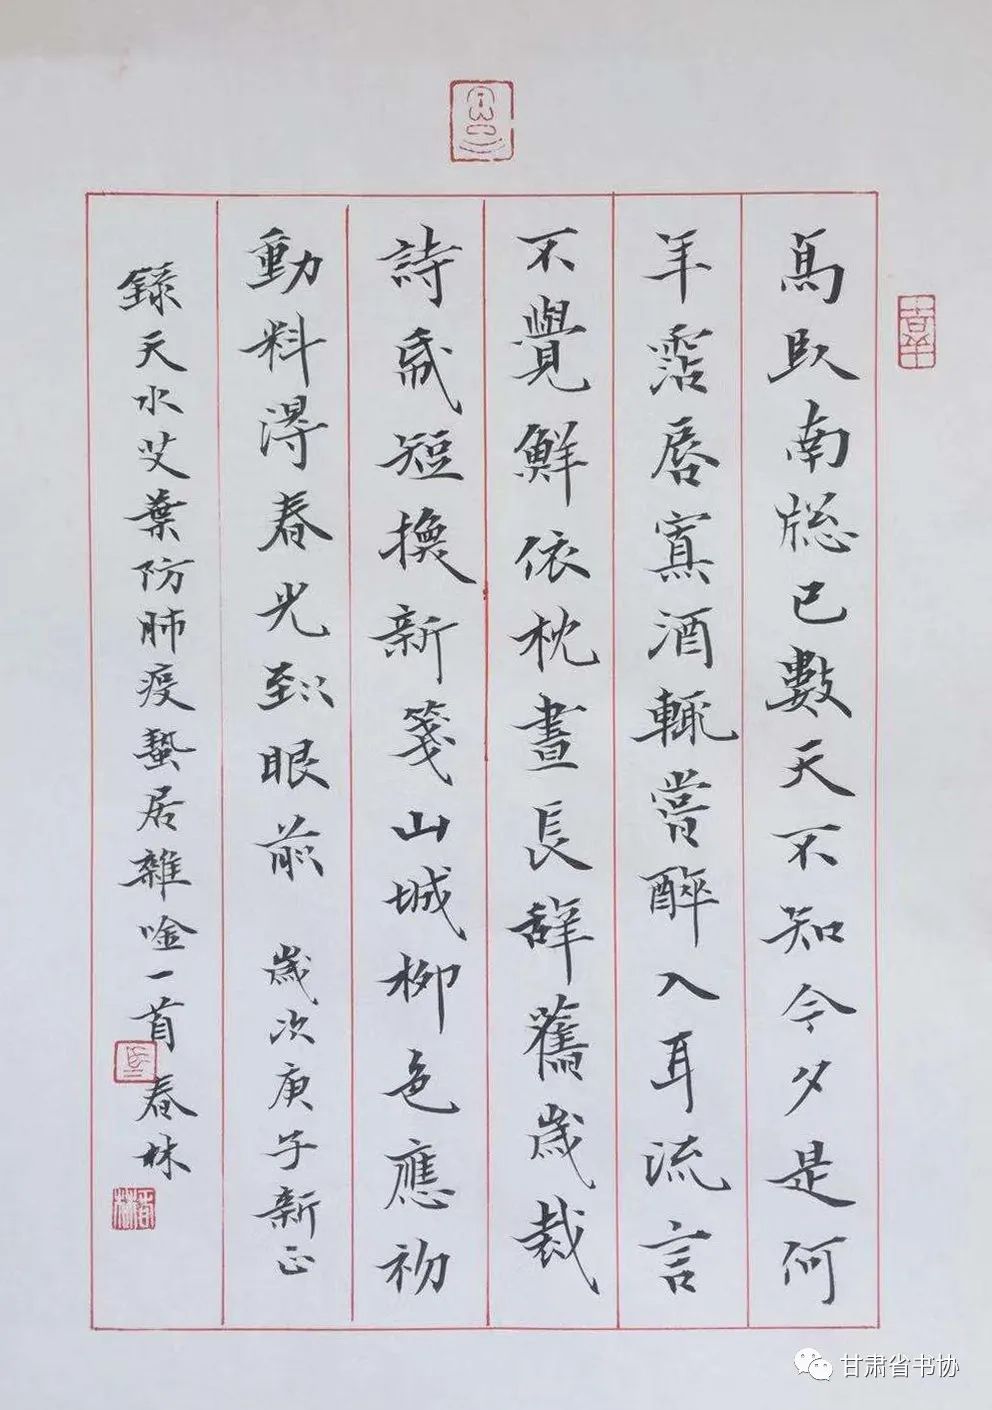 高臥南牕已數天不知今夕是何
年霑唇寡酒輒嘗醉入耳流言
不覺鮮依枕晝長辭舊歲裁
詩爲短換新箋山城柳色應初
動料得春光到眼前 歲次庚子新正
錄天水艾葉防肺疫蟄居雜唫一首 春林
甘肃省书协